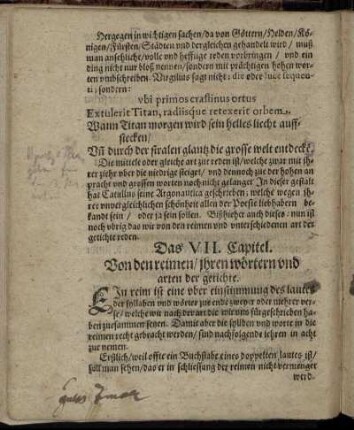 Hergegen in wichtigen sachen/da von Göttern/Helden/Kö-
nigen/Fürsten/Städten vnd dergleichen gehandelt wird/muß
man ansehliche/volle vnd hefftige reden vorbringen/vnd ein
ding nicht nur bloß nennen/sondern mit prächtigen hohen wor-
ten vmbschreiben. Virgilius sagt nicht: die oder luce sequen-
ti; sondern:
vbi primos crastinus ortus
Extulerit Titan, radiisque retexerit orbem.
Wann Titan morgen wird sein helles liecht auff-
stecken/
Vñ durch der stralen glantz die grosse welt entdeckē.
Die mittele oder gleiche art zur reden ist/welche zwar mit ih-
rer ziehr vber die niedrige steiget/vnd dennoch zue der hohen an
pracht vnd grossen worten noch nicht gelanget. In dieser gestalt
hat Catullus seine Argonautica geschrieben; welche wegen ih-
rer vnvergleichlichen schönheit allen der Poesie liebhabern be-
kandt sein/oder ja sein sollen. Bißhieher auch dieses: nun ist
noch vbrig das wir von den reimen vnd vnterschiedenen art der
getichte reden.
Das VII. Capitel.
Von den reimen/jhren wörtern vnd
arten der getichte.
EIn reim ist eine vber einstimmung des lautes
der syllaben vnd wörter zue ende zweyer oder mehrer ver-
se/welche wir nach der art die wir vns fürgeschrieben ha-
ben zuesammen setzen. Damit aber die syllben vnd worte in die
reimen recht gebracht werden/sind nachfolgende lehren in acht
zue nemen.
Erstlich/weil offte ein Buchstabe eines doppelten lautes ist/
soll man sehen/das er in schliessung der reimen nicht vermenget
werd.